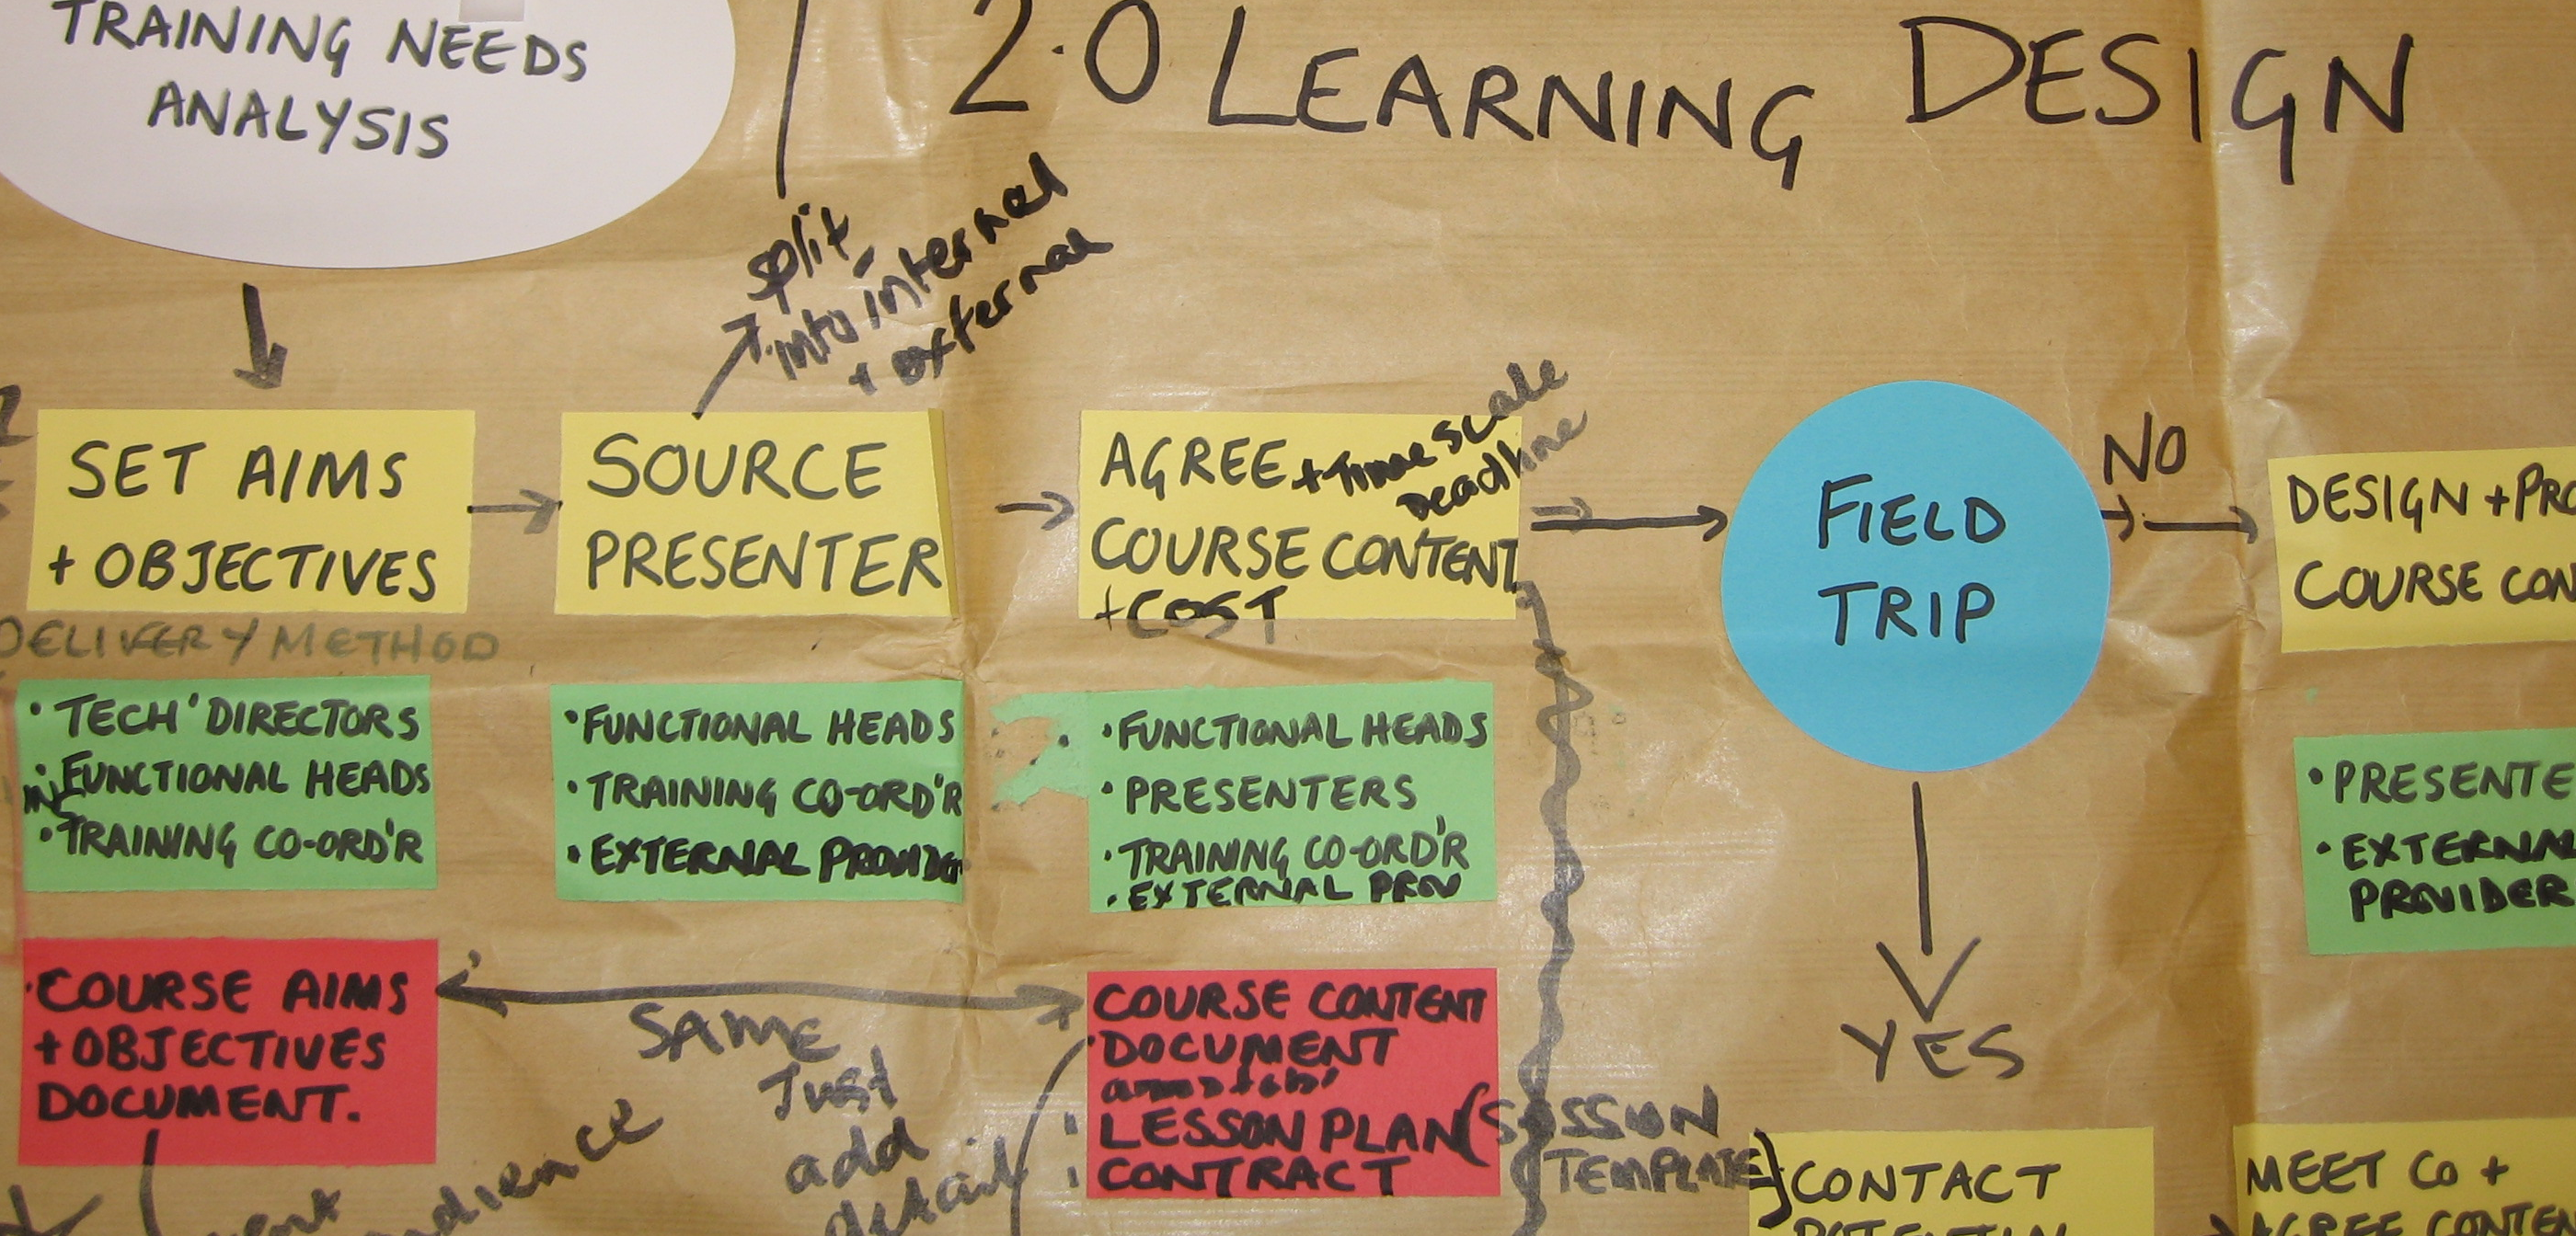 TRAINING NEEDS
ANALYSIS
2.0 LEARNING DESIGN
split
into internal
+ external
SET AIMS
+ OBJECTIVES
DELIVERY METHOD
SOURCE
PRESENTER
AGREE + Timescale
Deadline
COURSE CONTENT
+COST
FIELD
TRIP
NO
DESIGN + PRO
COURSE CON
• TECH' DIRECTORS
• FUNCTIONAL HEADS
• TRAINING CO-ORD'R
• FUNCTIONAL HEADS
• TRAINING CO-ORD'R
• EXTERNAL PROVIDER
• FUNCTIONAL HEADS
• PRESENTERS
• TRAINING CO-ORD'R
• EXTERNAL PROV
• PRESENTE
• EXTERNAL
PROVIDER
COURSE AIMS
+ OBJECTIVES
DOCUMENT.
SAME
Just
add
detail
audience
COURSE CONTENT
DOCUMENT
LESSON PLAN (SESSION
TEMPLATE)
CONTRACT
YES
CONTACT
MEET CO +
AGREE CONTEN